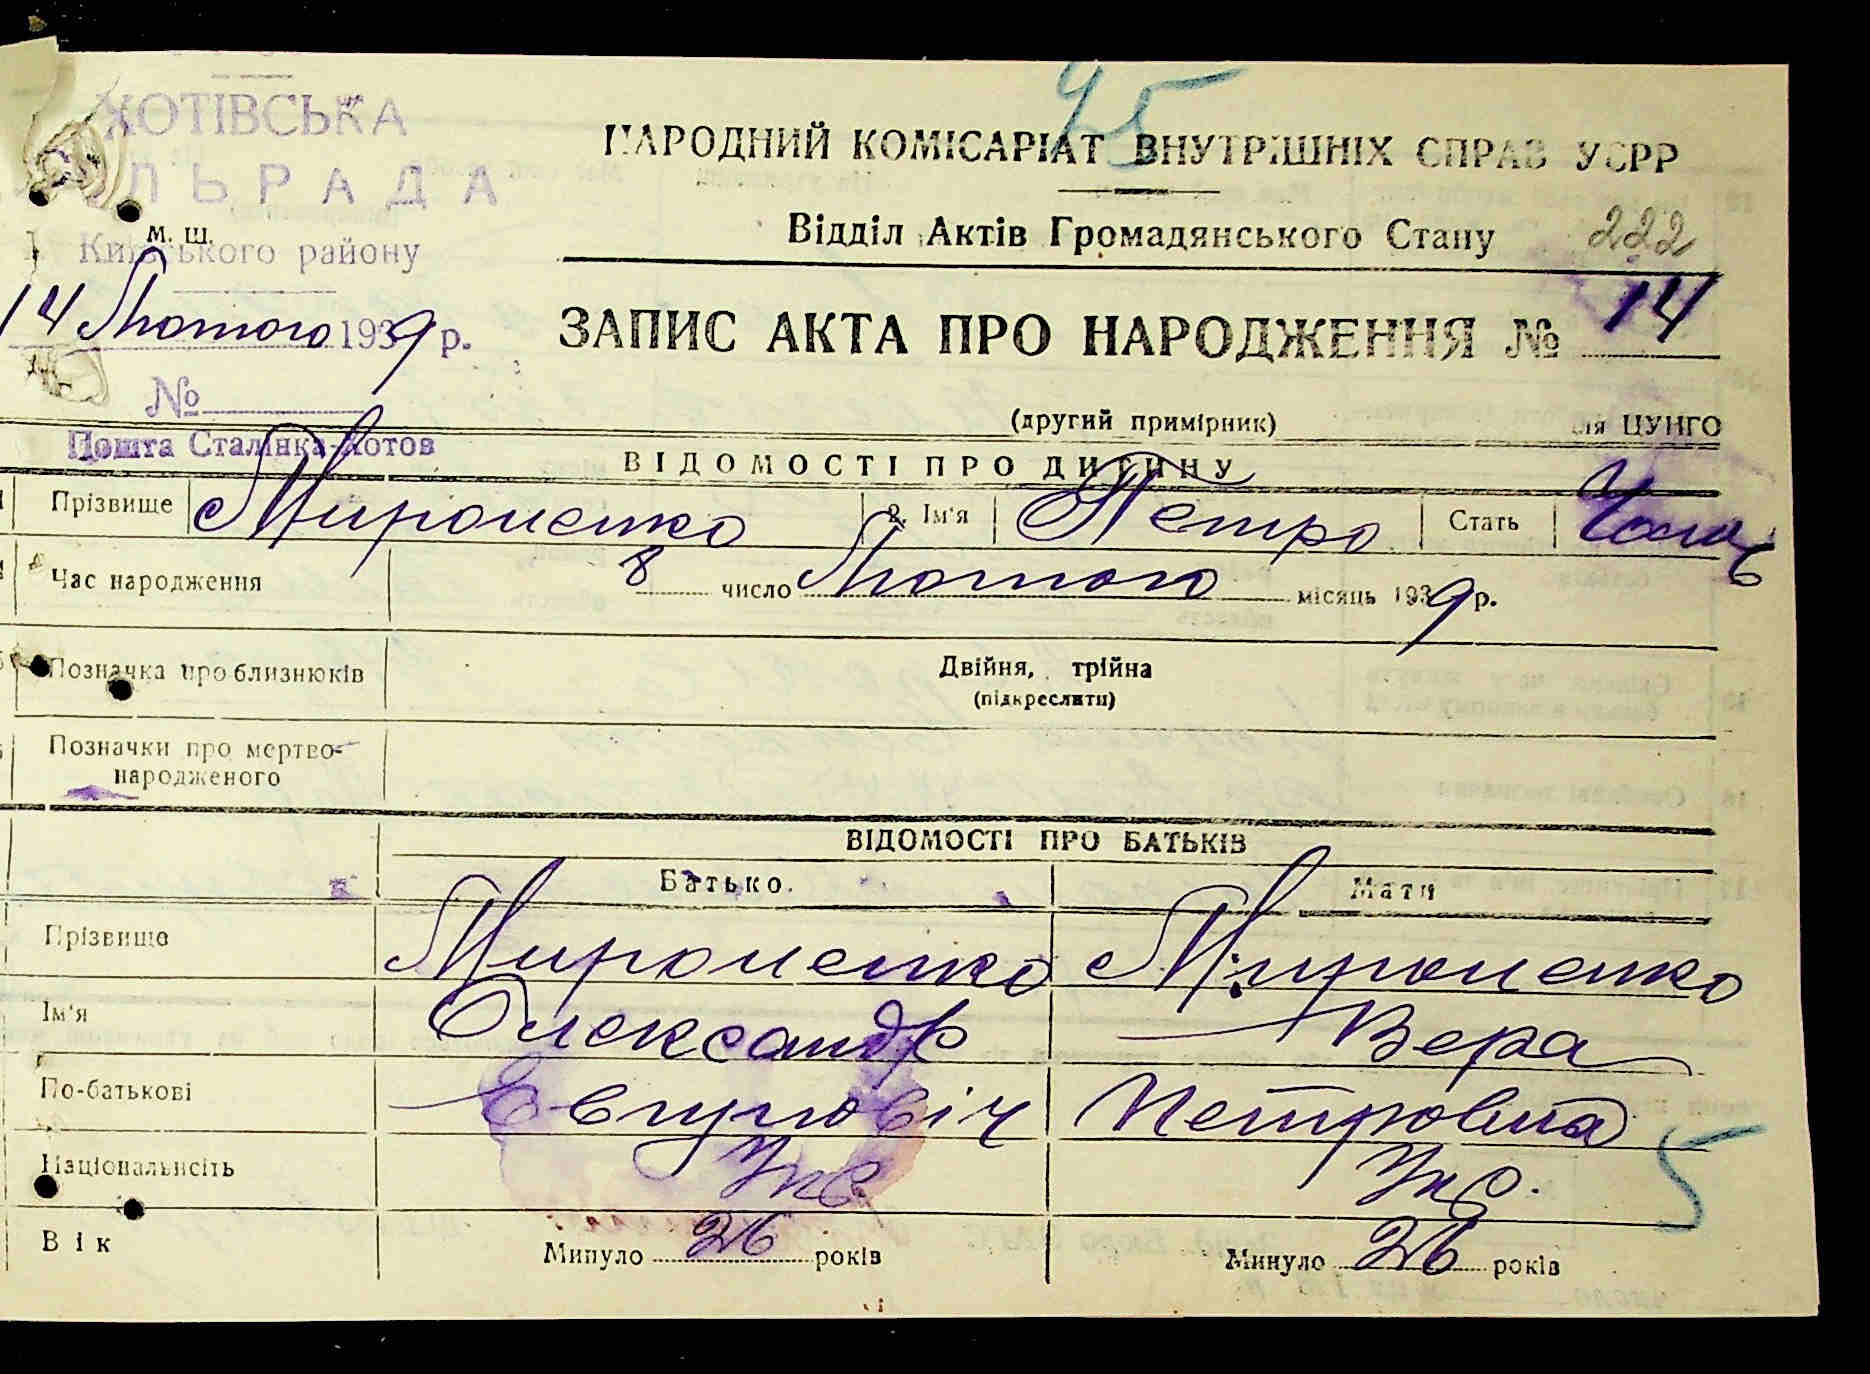 95
ХОТІВСЬКА
ЛЬРАДА
М. Ш.
Київського району
14 Лютого 1939 р.
№
Пошта Сталінка-Хотов
НАРОДНИЙ КОМІСАРІАТ ВНУТРІШНІХ СПРАВ УСРР
Відділ Актів Громадянського Стану 222
ЗАПИС АКТА ПРО НАРОДЖЕННЯ № 14
(другий примірник) для ЦУНГО
ВІДОМОСТІ ПРО ДИТИНУ
Прізвище Мироненко 2. Ім'я Петро Стать Чолов
Час народження 8 число Лютого місяць 1939 р.
Позначка про близнюків Двійня, трійна
(підкреслити)
Позначки про мертво-
народженого
ВІДОМОСТІ ПРО БАТЬКІВ
Батько. Мати
Прізвище Мироненко Мироненко
Ім'я Олександр Вера
По-батькові Петровна
Національність Укр. Укр.
5
Вік Минуло 26 років Минуло 26 років